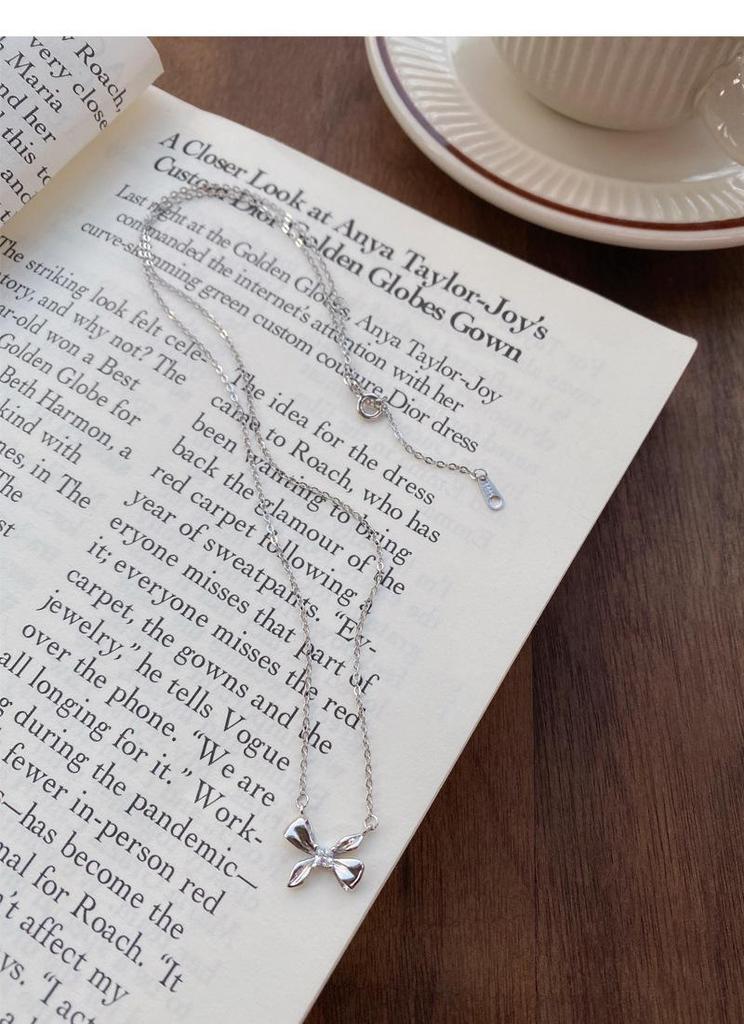 Roach,
very close
Maria
nd her
this to
and
A Closer Look at Anya Taylor-Joy's
Custom Dior Golden Globes Gown
Last night at the Golden Globes, Anya Taylor-Joy
commanded the internet's attention with her
curve-skimming green custom couture Dior dress
The striking look felt cele
tory, and why not? The
ar-old won a Best
Golden Globe for
Beth Harmon, a
kind with
nes, in The
The
st
The idea for the dress
came to Roach, who has
been wanting to bring
back the glamour of the
red carpet following a
year of sweatpants. "Ev-
eryone misses that part of
it; everyone misses the red
carpet, the gowns and the
jewelry," he tells Vogue
over the phone. "We are
all longing for it." Work-
g during the pandemic—
fewer in-person red
s—has become the
mal for Roach. "It
't affect my
ys. "I act